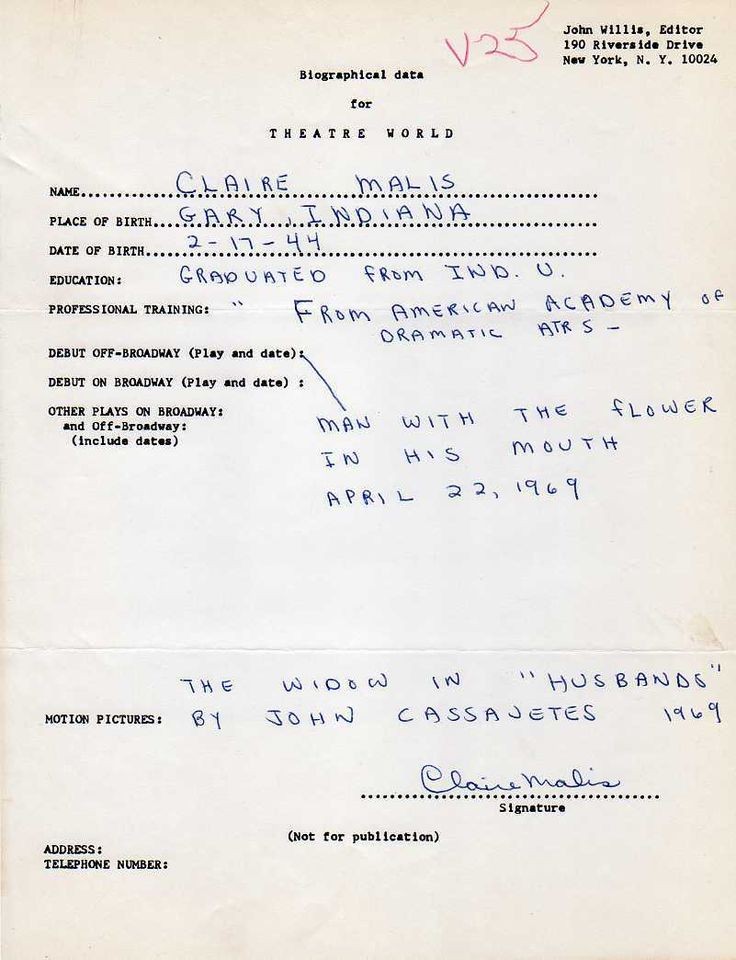 V25
John Willis, Editor
190 Riverside Drive
New York, N. Y. 10024
Biographical data
for
THEATRE WORLD
NAME.......... CLAIRE MALIS
PLACE OF BIRTH.... GARY, INDIANA
DATE OF BIRTH..... 2-17-44
EDUCATION: GRADUATED FROM IND. U.
PROFESSIONAL TRAINING: " FROM AMERICAN ACADEMY OF
DRAMATIC ATRS -
DEBUT OFF-BROADWAY (Play and date):
DEBUT ON BROADWAY (Play and date) :
OTHER PLAYS ON BROADWAY:
and Off-Broadway:
(include dates)
MAN WITH THE FLOWER
IN HIS MOUTH
APRIL 22, 1969
THE WIDOW IN "HUSBANDS"
MOTION PICTURES: BY JOHN CASSAVETES 1969
Claire Malis
Signature
(Not for publication)
ADDRESS:
TELEPHONE NUMBER: